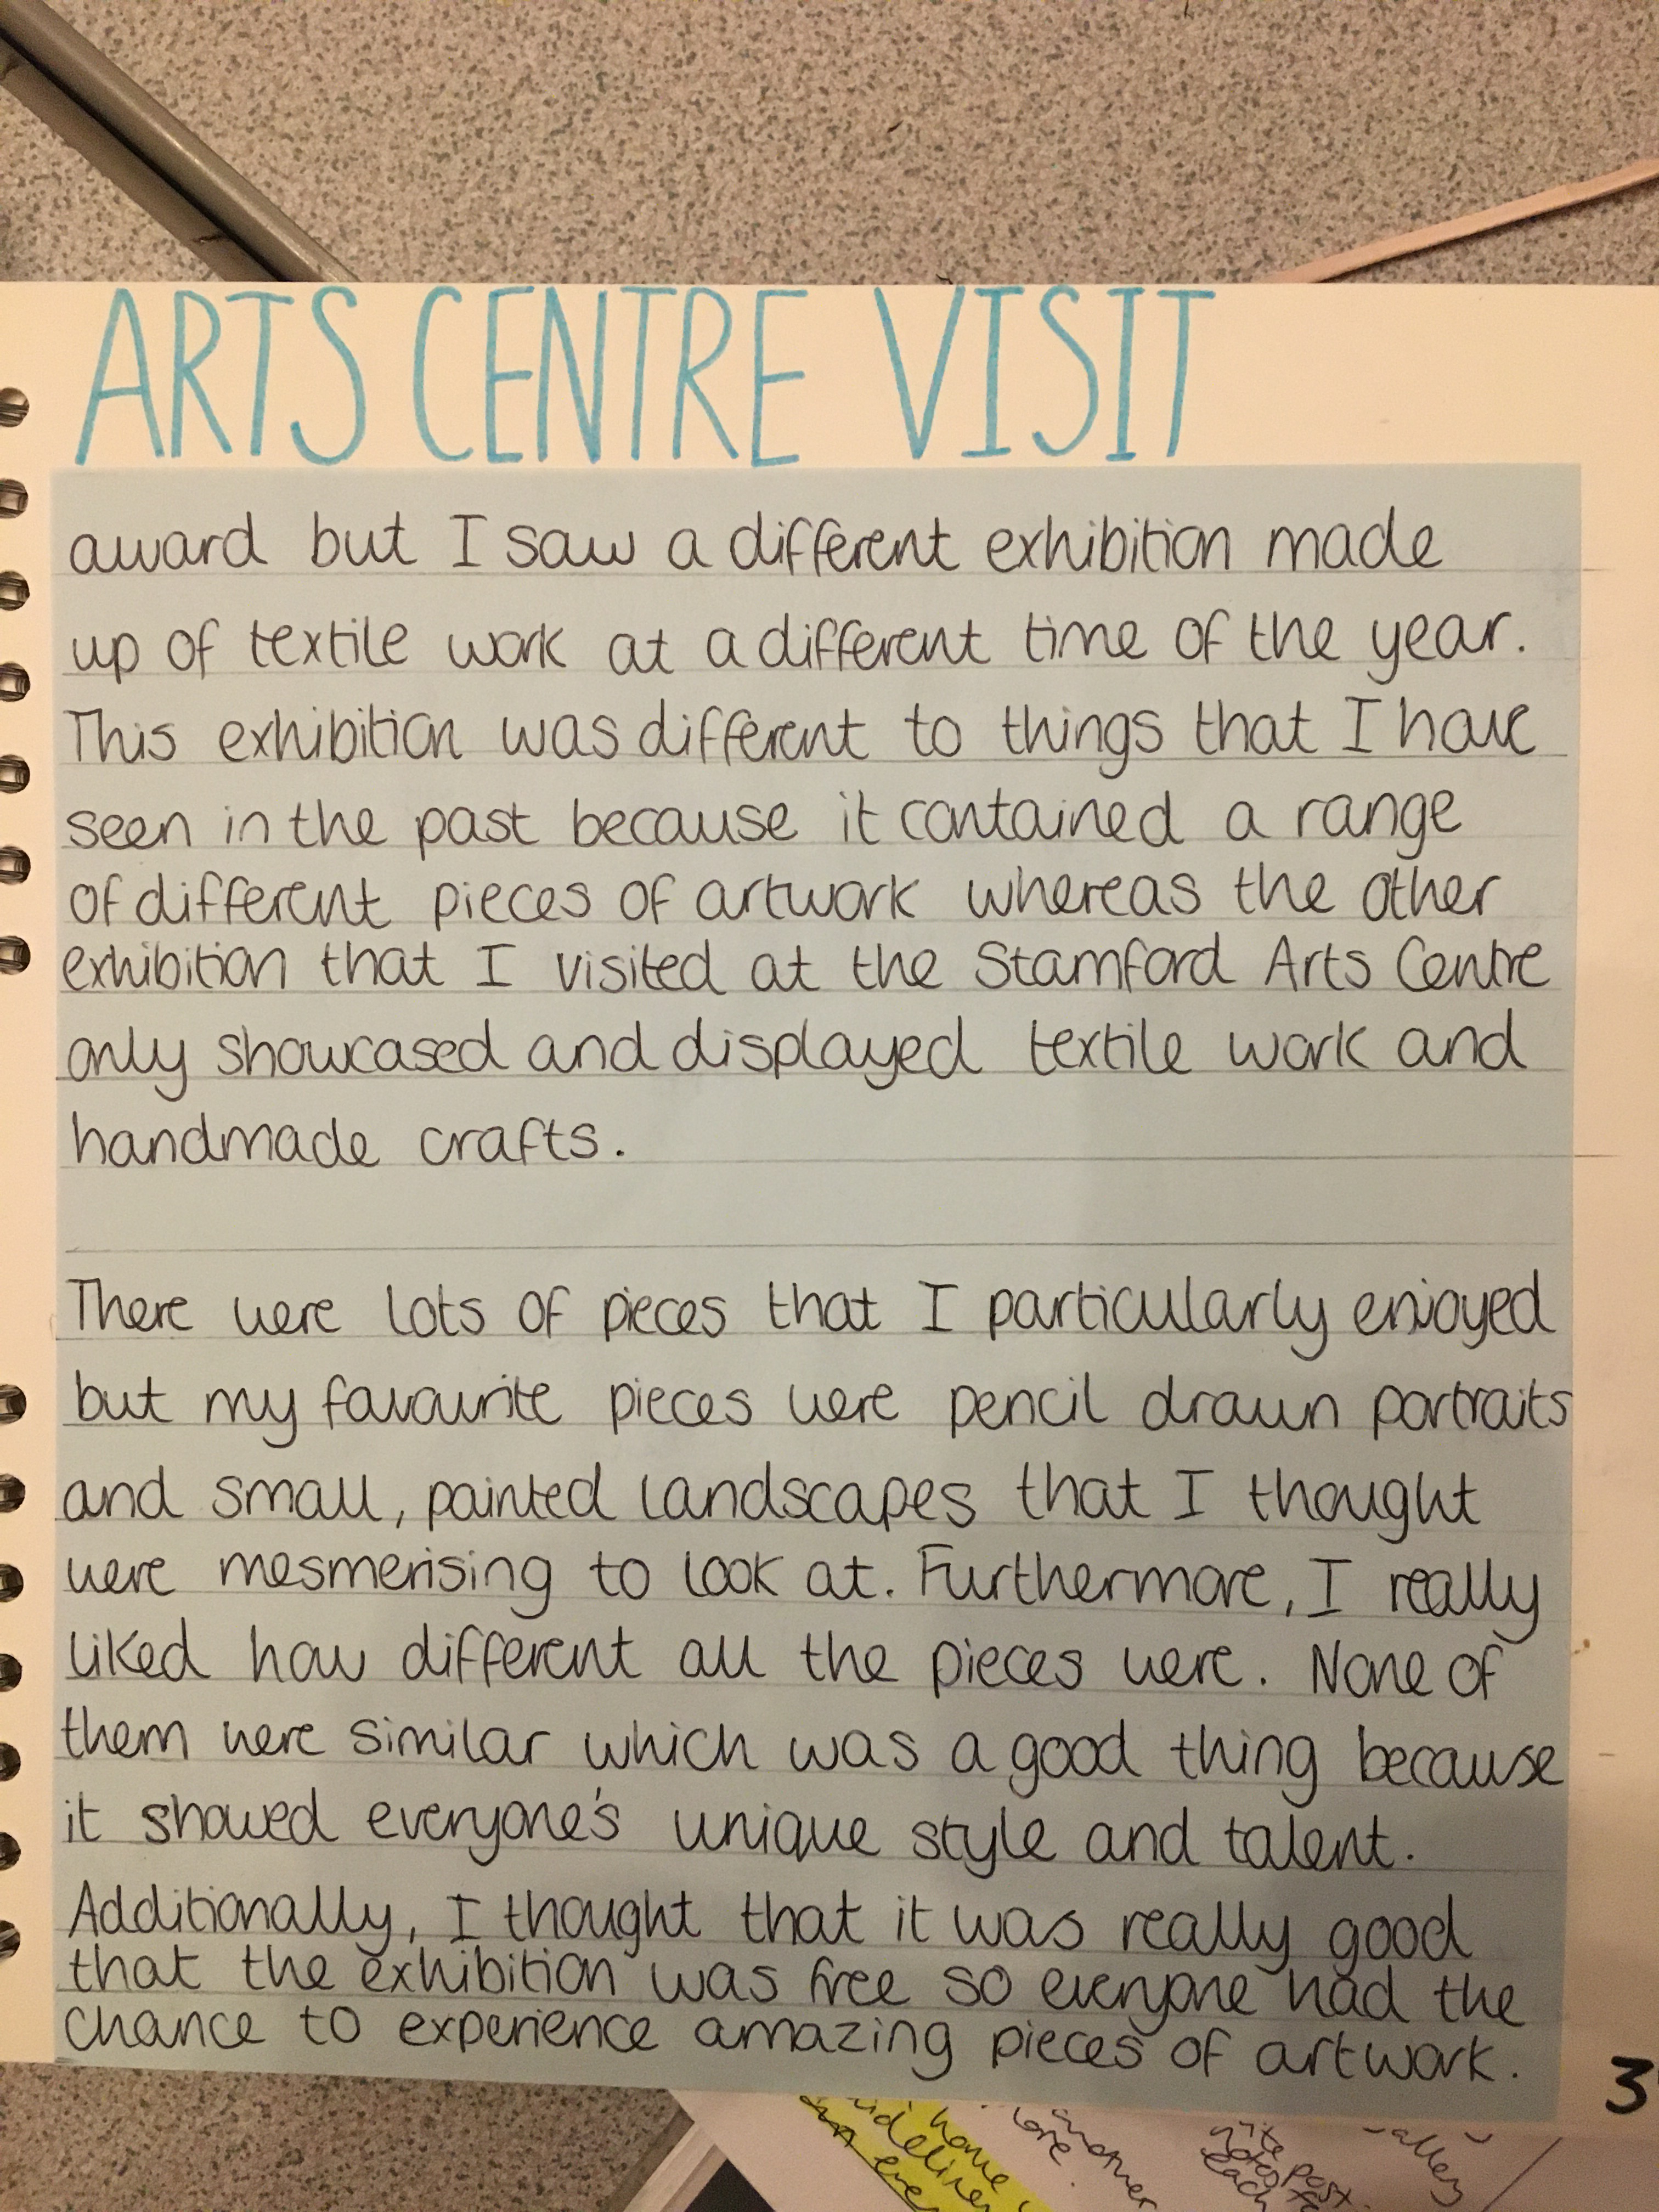 ARTS CENTRE VISIT
award but I saw a different exhibition made
up of textile work at a different time of the year.
This exhibition was different to things that I have
seen in the past because it contained a range
of different pieces of artwork whereas the other
exhibition that I visited at the Stamford Arts Centre
only showcased and displayed textile work and
handmade crafts.
There were lots of pieces that I particularly enjoyed
but my favourite pieces were pencil drawn portraits
and small, painted landscapes that I thought
were mesmerising to look at. Furthermore, I really
liked how different all the pieces were. None of
them were similar which was a good thing because
it showed everyone's unique style and talent.
Additionally, I thought that it was really good
that the exhibition was free so everyone had the
chance to experience amazing pieces of artwork.
3
home
another
post
each